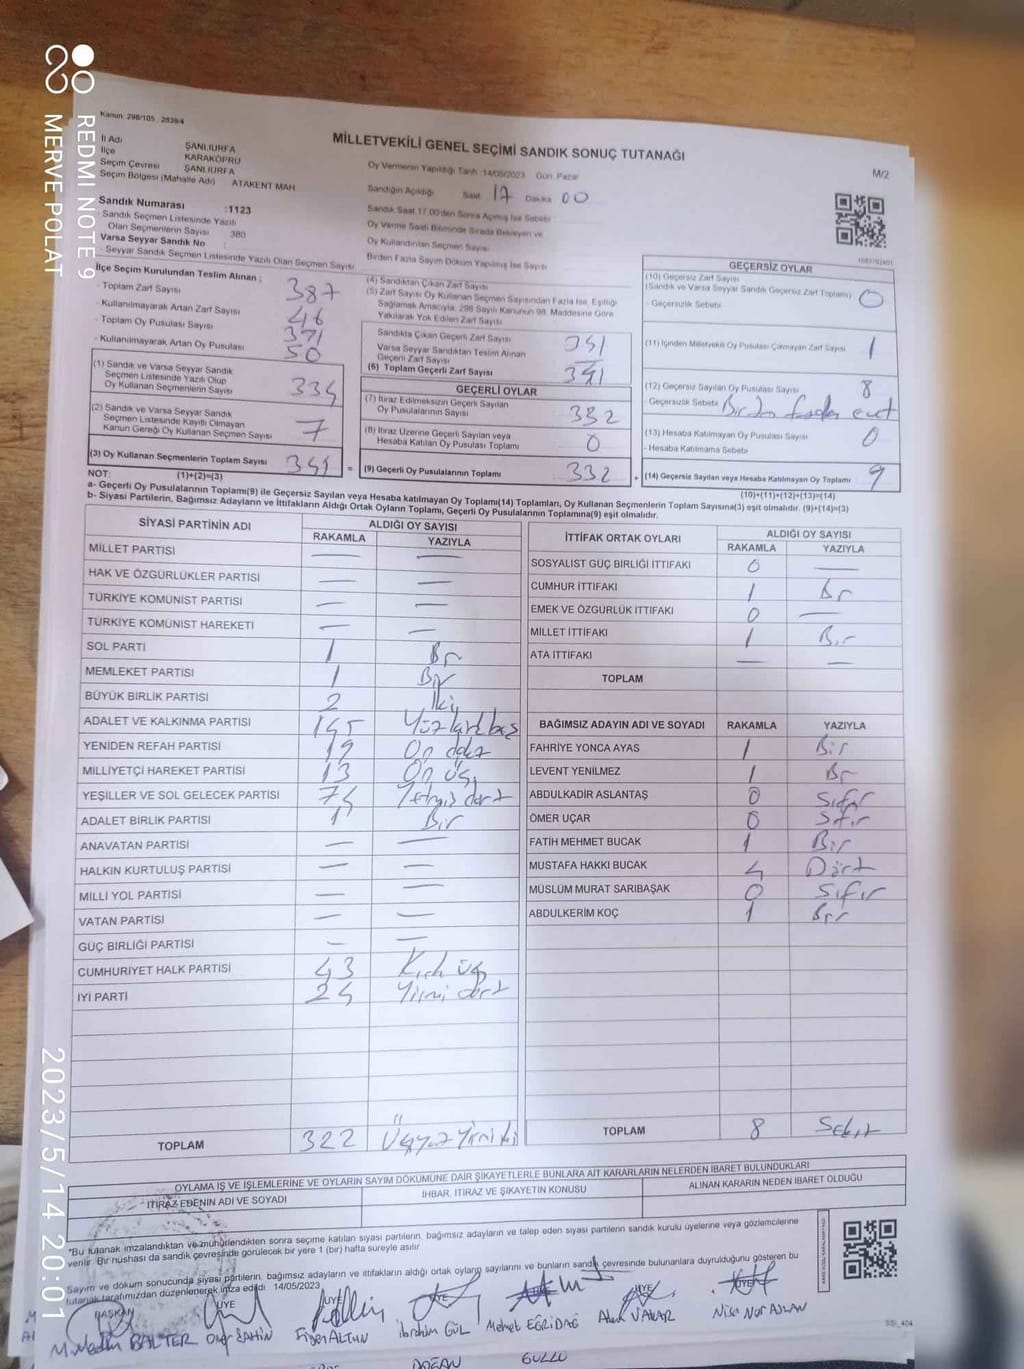 REDMI NOTE 9
MERVE POLAT
2023/5/14 20:01
Kanun: 298/105 , 2839/4
MİLLETVEKİLİ GENEL SEÇİMİ SANDIK SONUÇ TUTANAĞI
M/2
İl Adı ŞANLIURFA
İlçe KARAKÖPRÜ
Seçim Çevresi ŞANLIURFA
Seçim Bölgesi (Mahalle Adı) ATAKENT MAH
Sandık Numarası :1123
- Sandık Seçmen Listesinde Yazılı
Olan Seçmenlerin Sayısı 380
Varsa Seyyar Sandık No
- Seyyar Sandık Seçmen Listesinde Yazılı Olan Seçmen Sayısı
Oy Vermenin Yapıldığı Tarih :14/05/2023 Gün Pazar
Sandığın Açıldığı Saat 17 Dakika 00
Sandık Saat 17.00'den Sonra Açılmış İse Sebebi
Oy Verme Saati Bitiminde Sırada Bekleyen ve
Oy Kullandırılan Seçmen Sayısı
Birden Fazla Sayım Döküm Yapılmış İse Sayısı
İlçe Seçim Kurulundan Teslim Alınan ;
- Toplam Zarf Sayısı 387
- Kullanılmayarak Artan Zarf Sayısı 46
- Toplam Oy Pusulası Sayısı 391
- Kullanılmayarak Artan Oy Pusulası 50
(1) Sandık ve Varsa Seyyar Sandık
Seçmen Listesinde Yazılı Olup
Oy Kullanan Seçmenlerin Sayısı 334
(2) Sandık ve Varsa Seyyar Sandık
Seçmen Listesinde Kayıtlı Olmayan
Kanun Gereği Oy Kullanan Seçmen Sayısı 7
(3) Oy Kullanan Seçmenlerin Toplam Sayısı 341 =
(4) Sandıktan Çıkan Zarf Sayısı
(5) Zarf Sayısı Oy Kullanan Seçmen Sayısından Fazla İse, Eşitliği
Sağlamak Amacıyla, 298 Sayılı Kanunun 98. Maddesine Göre
Yakılarak Yok Edilen Zarf Sayısı
Sandıkta Çıkan Geçerli Zarf Sayısı 341
Varsa Seyyar Sandıktan Teslim Alınan
Geçerli Zarf Sayısı
(6) Toplam Geçerli Zarf Sayısı 341
GEÇERLİ OYLAR
(7) İtiraz Edilmeksizin Geçerli Sayılan
Oy Pusulalarının Sayısı 332
(8) İtiraz Üzerine Geçerli Sayılan veya
Hesaba Katılan Oy Pusulası Toplamı 0
(9) Geçerli Oy Pusulalarının Toplamı 332 +
GEÇERSİZ OYLAR
(10) Geçersiz Zarf Sayısı
(Sandık ve Varsa Seyyar Sandık Geçersiz Zarf Toplamı) 0
- Geçersizlik Sebebi
(11) İçinden Milletvekili Oy Pusulası Çıkmayan Zarf Sayısı 1
(12) Geçersiz Sayılan Oy Pusulası Sayısı 8
- Geçersizlik Sebebi Birden fazla evet
(13) Hesaba Katılmayan Oy Pusulası Sayısı 0
- Hesaba Katılmama Sebebi
(14) Geçersiz Sayılan veya Hesaba Katılmayan Oy Toplamı 9
NOT: (1)+(2)=(3)
(10)+(11)+(12)+(13)=(14)
a- Geçerli Oy Pusulalarının Toplamı(9) ile Geçersiz Sayılan veya Hesaba katılmayan Oy Toplamı(14) Toplamları, Oy Kullanan Seçmenlerin Toplam Sayısına(3) eşit olmalıdır. (9)+(14)=(3)
b- Siyasi Partilerin, Bağımsız Adayların ve İttifakların Aldığı Ortak Oyların Toplamı, Geçerli Oy Pusulalarının Toplamına(9) eşit olmalıdır.
SİYASİ PARTİNİN ADI ALDIĞI OY SAYISI
RAKAMLA YAZIYLA
MİLLET PARTİSI — —
HAK VE ÖZGÜRLÜKLER PARTİSİ — —
TÜRKİYE KOMÜNİST PARTİSİ — —
TÜRKİYE KOMÜNİST HAREKETİ — —
SOL PARTİ 1 Bir
MEMLEKET PARTİSİ 1 Bir
BÜYÜK BİRLİK PARTİSİ 2 İki
ADALET VE KALKINMA PARTİSİ 145 Yüzkırkbeş
YENİDEN REFAH PARTİSİ 19 On dokz
MİLLİYETÇİ HAREKET PARTİSİ 13 On üç
YEŞİLLER VE SOL GELECEK PARTİSİ 74 Yetmiş dört
ADALET BİRLİK PARTİSİ 1 Bir
ANAVATAN PARTİSİ — —
HALKIN KURTULUŞ PARTİSİ — —
MİLLİ YOL PARTİSİ — —
VATAN PARTİSİ — —
GÜÇ BİRLİĞİ PARTİSİ — —
CUMHURİYET HALK PARTİSİ 43 Kırk üç
İYİ PARTİ 24 Yirmi dört
TOPLAM 322 Üçyüz Yirmi iki
İTTİFAK ORTAK OYLARI ALDIĞI OY SAYISI
RAKAMLA YAZIYLA
SOSYALİST GÜÇ BİRLİĞİ İTTİFAKI 0 —
CUMHUR İTTİFAKI 1 Bir
EMEK VE ÖZGÜRLÜK İTTİFAKI 0 —
MİLLET İTTİFAKI 1 Bir
ATA İTTİFAKI — —
TOPLAM
BAĞIMSIZ ADAYIN ADI VE SOYADI RAKAMLA YAZIYLA
FAHRİYE YONCA AYAS 1 Bir
LEVENT YENİLMEZ 1 Bir
ABDULKADİR ASLANTAŞ 0 Sıfır
ÖMER UÇAR 0 Sıfır
FATİH MEHMET BUCAK 1 Bir
MUSTAFA HAKKI BUCAK 4 Dört
MÜSLÜM MURAT SARIBAŞAK 0 Sıfır
ABDULKERİM KOÇ 1 Bir
TOPLAM 8 Sekiz
OYLAMA İŞ VE İŞLEMLERİNE VE OYLARIN SAYIM DÖKÜMÜNE DAİR ŞİKAYETLERLE BUNLARA AİT KARARLARIN NELERDEN İBARET BULUNDUKLARI
İTİRAZ EDENİN ADI VE SOYADI İHBAR, İTİRAZ VE ŞİKAYETİN KONUSU ALINAN KARARIN NEDEN İBARET OLDUĞU
*Bu tutanak imzalandıktan ve mühürlendikten sonra seçime katılan siyasi partilerin, bağımsız adayların ve talep eden siyasi partilerin sandık kurulu üyelerine veya gözlemcilerine
verilir. Bir nüshası da sandık çevresinde görülecek bir yere 1 (bir) hafta süreyle asılır.
Sayım ve döküm sonucunda siyasi partilerin, bağımsız adayların ve ittifakların aldığı ortak oyların sayılarını ve bunların sandık çevresinde bulunanlara duyrulduğunu gösteren bu
tutanak tarafımızdan düzenlenerek imza edildi. 14/05/2023
BAŞKAN ÜYE ÜYE ÜYE ÜYE
BALTER Onur ŞAHİN Figen ALTUN İbrahim GÜL Mehmet EĞRİDAĞ Nisa Nur ASLAN
DOĞAN GÜLLÜ